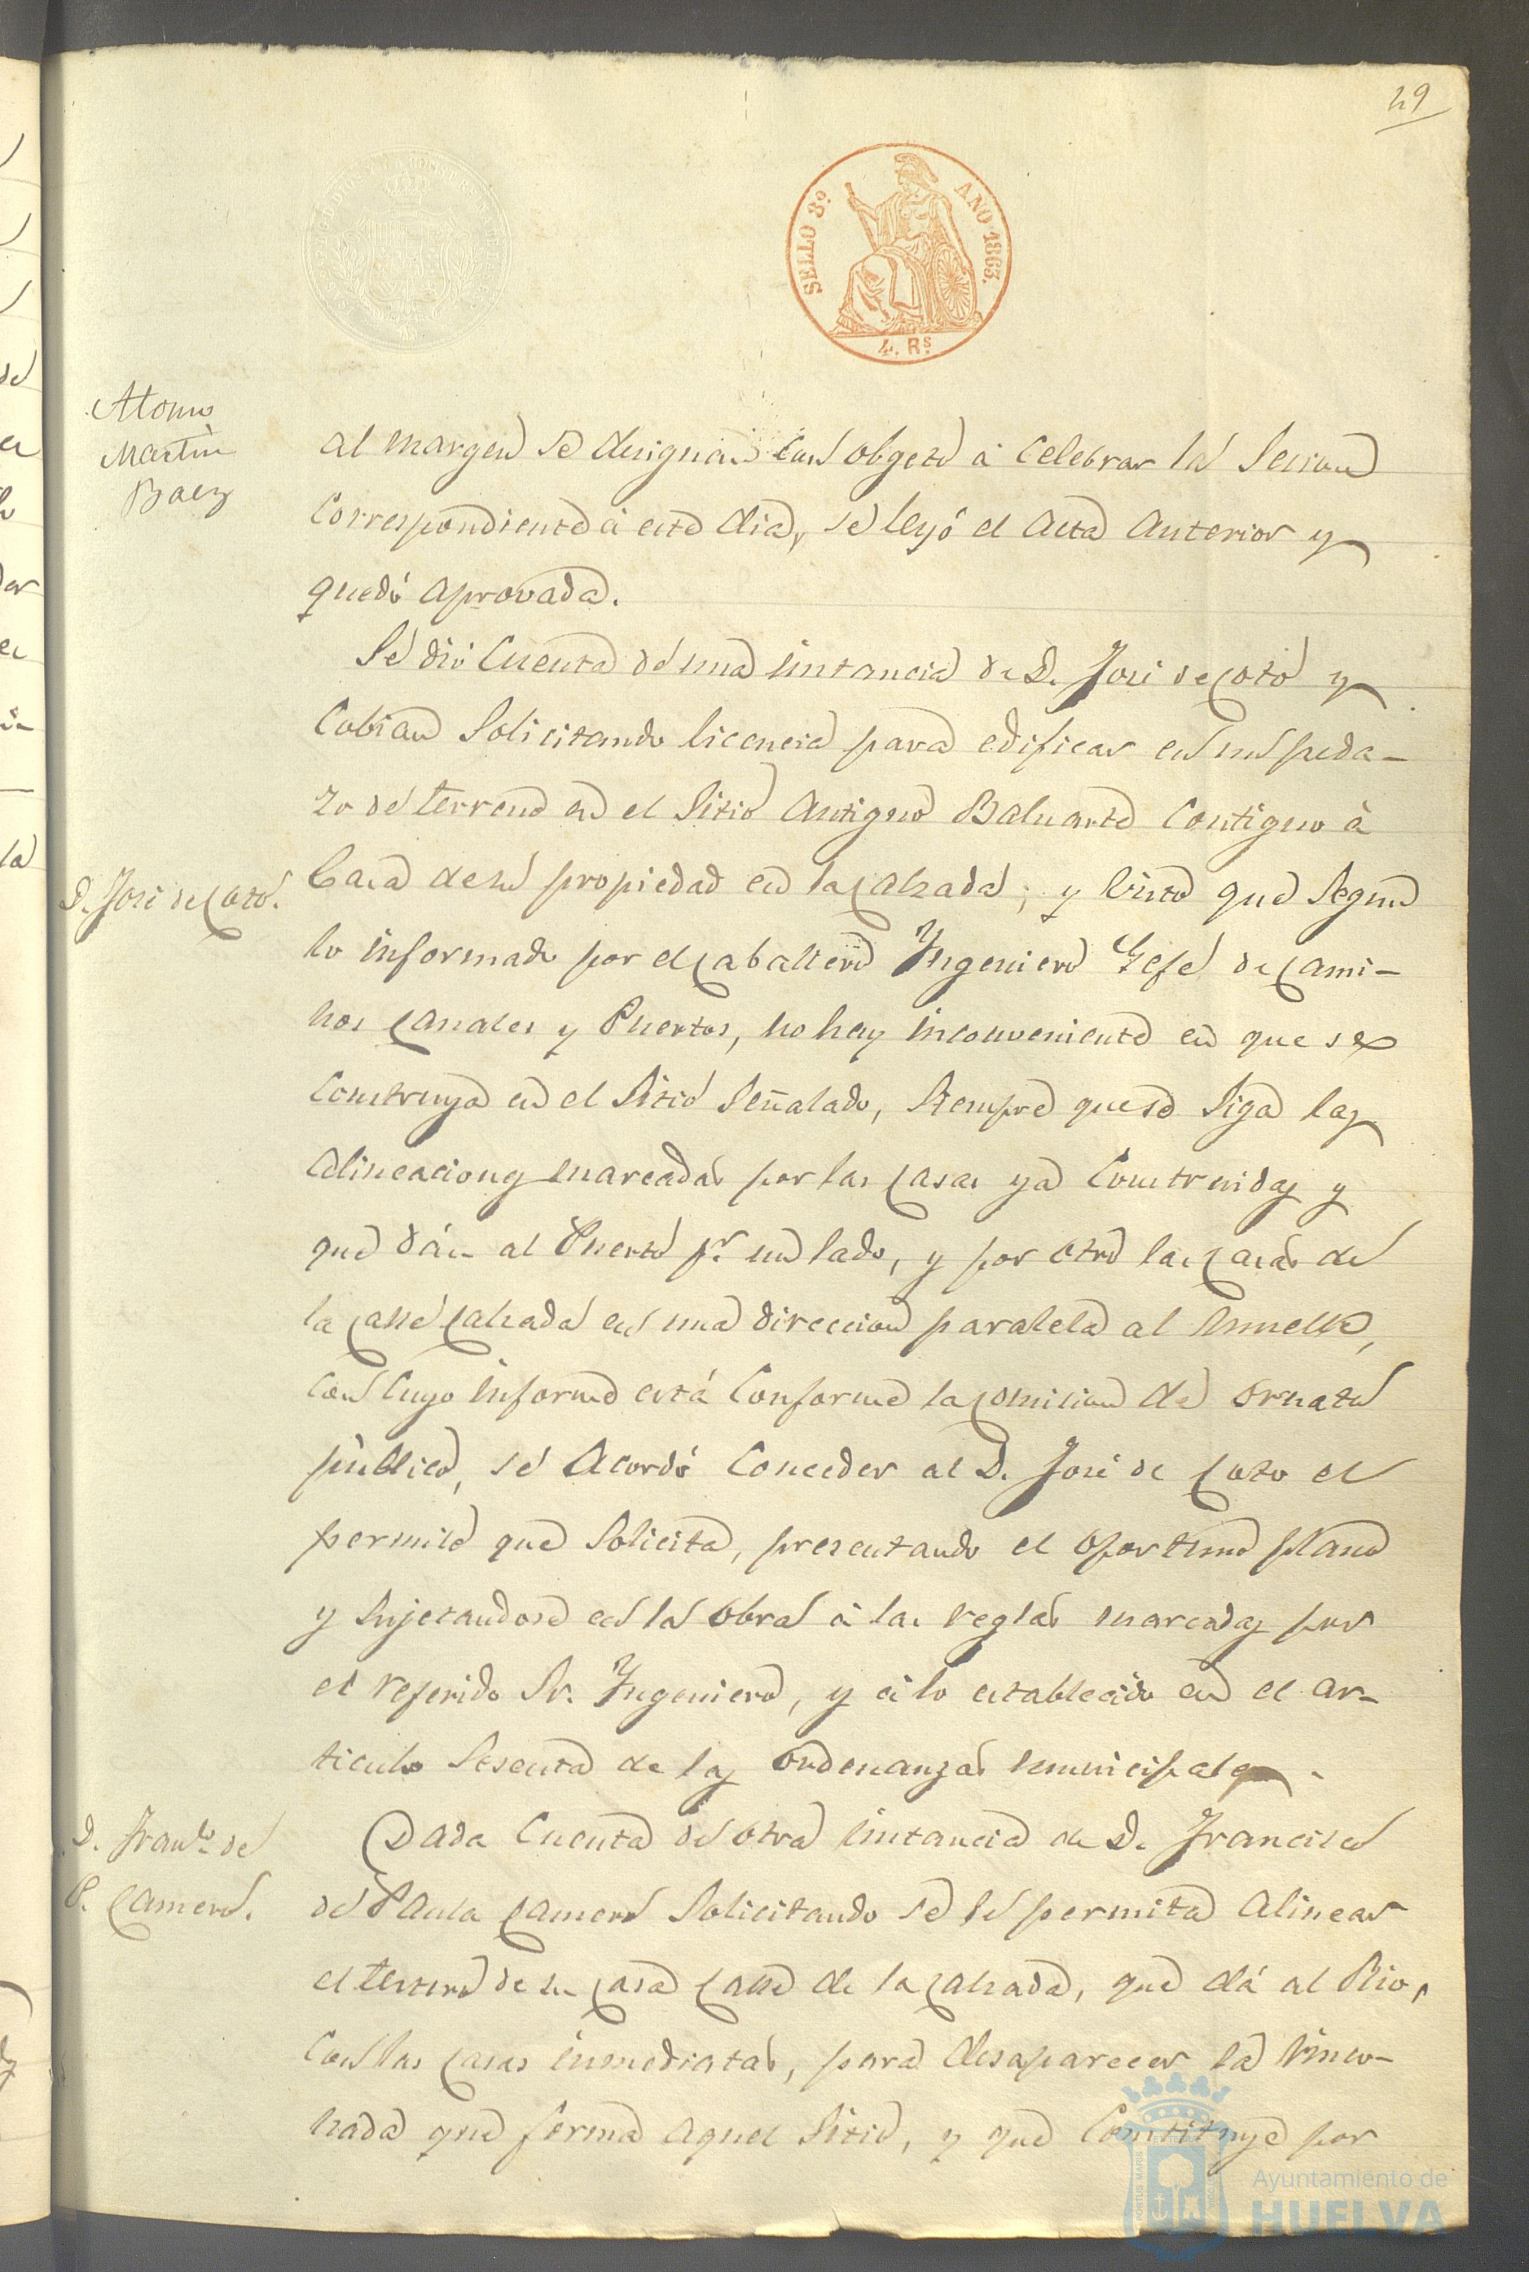 49
SELLO 3º AÑO 1863.
4. Rs.
Alonso
Martin
Baez
al margen se designan con obgeto á celebrar la Sesion
correspondiente á este dia, se leyó el acta anterior y
quedó aprovada.
Se dió cuenta de una instancia de D. José de Coto y
Cobian solicitando licencia para edificar en un peda-
zo de terreno en el sitio antiguo Baluarte contiguo á
D. José de Coto.
Casa de su propiedad en la Calzada; y visto que segun
lo informado por el Caballero Yngeniero Gefe de Cami-
nos Canales y Puertos, no hay inconveniente en que se
construya en el sitio señalado, siempre que se siga las
alineaciones marcadas por las Casas ya construidas y
que dán al Puerto pr. un lado, y por otro las Casas de
la Calle Calzada en una direccion paralela al muelle,
con cuyo informe está conforme la Comision de ornato
público, se acordó conceder al D. José de Coto el
permiso que solicita, presentando el oportuno plano
y sujetandose en la obra á las reglas marcadas por
el referido Sr. Yngeniero, y á lo establecido en el ar-
ticulo sesenta de las ordenanzas municipales.
D. Franco. de
P. Camero.
Dada cuenta de otra instancia de D. Francisco
de Paula Camero solicitando se le permita alinear
el testero de su Casa Calle de la Calzada, que dá al Rio,
con las casas inmediatas, para desaparecer la rinco-
nada que forma aquel sitio, y que constituye por
PORTUS MARIS
Ayuntamiento de
HUELVA